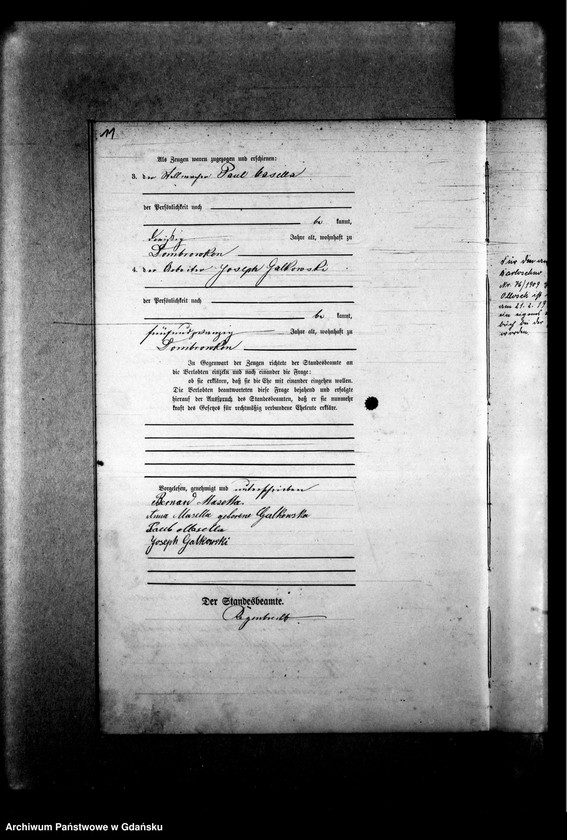 11
Als Zeugen waren zugezogen und erschienen:
3. der Stellmacher Paul Masella
der Persönlichkeit nach
be kannt,
dreißig Jahre alt, wohnhaft zu
Dombrowken
4. der Arbeiter Joseph Galkowski
der Persönlichkeit nach
be kannt,
fünfundzwanzig Jahre alt, wohnhaft zu
Dombrowken
In Gegenwart der Zeugen richtete der Standesbeamte an
die Verlobten einzeln und nach einander die Frage:
ob sie erklären, daß sie die Ehe mit einander eingehen wollen.
Die Verlobten beantworteten diese Frage bejahend und erfolgte
hierauf der Ausspruch des Standesbeamten, daß er sie nunmehr
kraft des Gesetzes für rechtmäßig verbundene Eheleute erkläre.
Vorgelesen, genehmigt und unterschrieben
Bernard Masella
Anna Masella geborene Galkowska
Masella
Joseph Galkowski
Der Standesbeamte.
Regenbrecht
Nr. 76/1909
am 21. 2. 19
buch bei der
worden
Archiwum Państwowe w Gdańsku